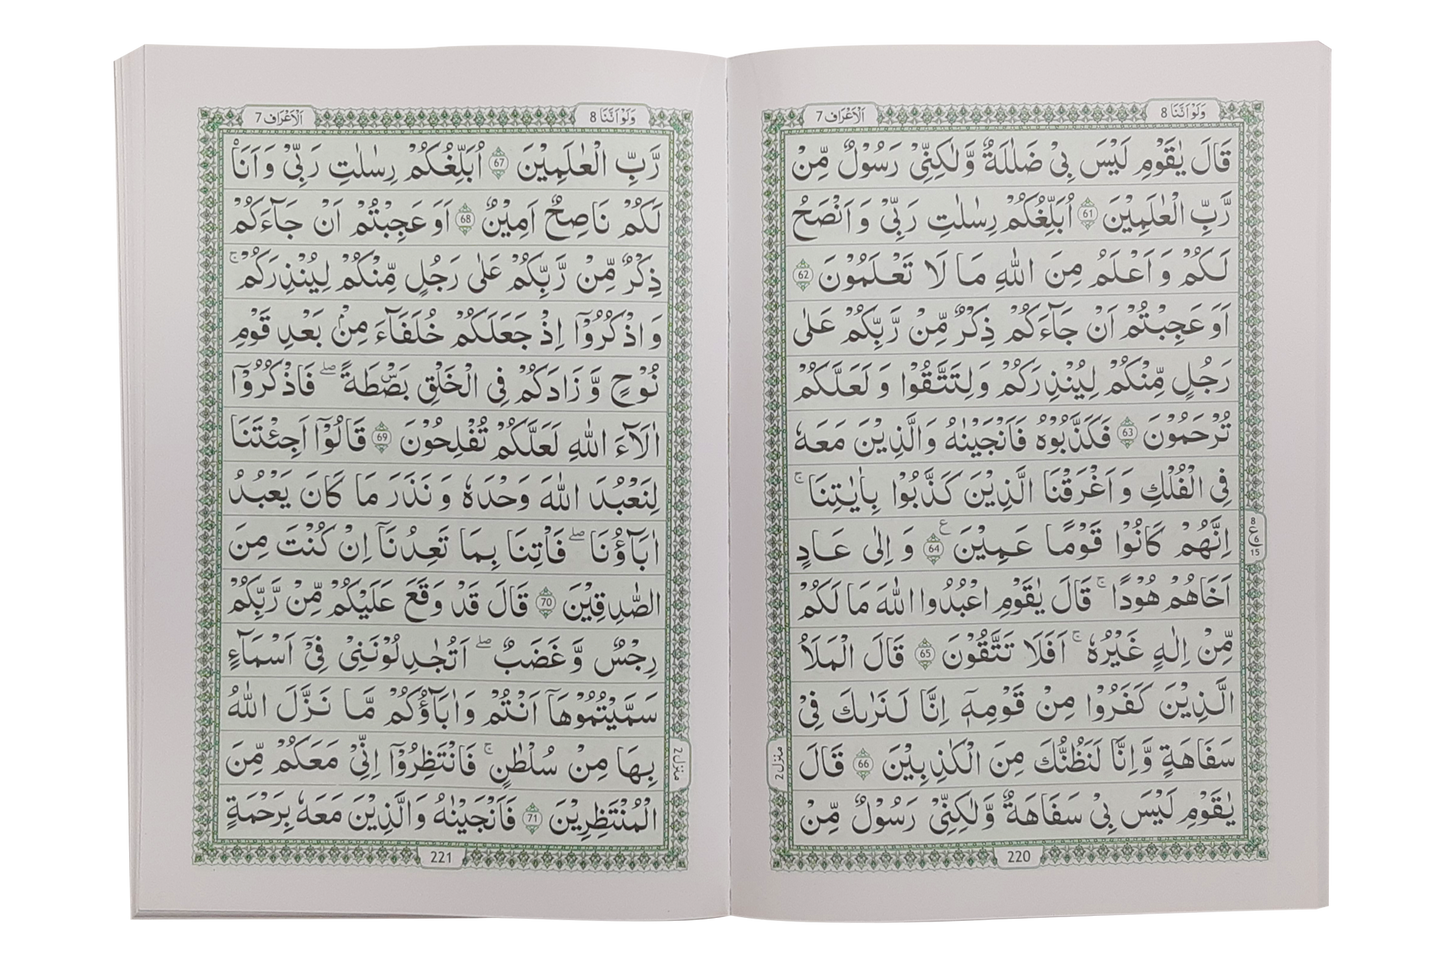 وَلَوْ اَنَّنَا 8
اَلْاَعْرَاف 7
قَالَ يٰقَوْمِ لَيْسَ بِىْ ضَلٰلَةٌ وَّلٰكِنِّىْ رَسُوْلٌ مِّنْ
رَّبِّ الْعٰلَمِيْنَ 61 اُبَلِّغُكُمْ رِسٰلٰتِ رَبِّىْ وَ اَنْصَحُ
لَكُمْ وَ اَعْلَمُ مِنَ اللّٰهِ مَا لَا تَعْلَمُوْنَ 62
اَوَ عَجِبْتُمْ اَنْ جَآءَكُمْ ذِكْرٌ مِّنْ رَّبِّكُمْ عَلٰى
رَجُلٍ مِّنْكُمْ لِيُنْذِرَكُمْ وَلِتَتَّقُوْا وَ لَعَلَّكُمْ
تُرْحَمُوْنَ 63 فَكَذَّبُوْهُ فَاَنْجَيْنٰهُ وَالَّذِيْنَ مَعَهٗ
فِى الْفُلْكِ وَ اَغْرَقْنَا الَّذِيْنَ كَذَّبُوْا بِاٰيٰتِنَا ۚ
اِنَّهُمْ كَانُوْا قَوْمًا عَمِيْنَ 64 ع وَ اِلٰى عَادٍ
اَخَاهُمْ هُوْدًا ۚ قَالَ يٰقَوْمِ اعْبُدُوا اللّٰهَ مَا لَكُمْ
مِّنْ اِلٰهٍ غَيْرُهٗ ۚ اَفَلَا تَتَّقُوْنَ 65 قَالَ الْمَلَاُ
الَّذِيْنَ كَفَرُوْا مِنْ قَوْمِهٖٓ اِنَّا لَنَرٰىكَ فِىْ
سَفَاهَةٍ وَّاِنَّا لَنَظُنُّكَ مِنَ الْكٰذِبِيْنَ 66 قَالَ
يٰقَوْمِ لَيْسَ بِىْ سَفَاهَةٌ وَّلٰكِنِّىْ رَسُوْلٌ مِّنْ
8
ع
6
15
منزل 2
220
وَلَوْ اَنَّنَا 8
اَلْاَعْرَاف 7
رَّبِّ الْعٰلَمِيْنَ 67 اُبَلِّغُكُمْ رِسٰلٰتِ رَبِّىْ وَ اَنَا
لَكُمْ نَاصِحٌ اَمِيْنٌ 68 اَوَ عَجِبْتُمْ اَنْ جَآءَكُمْ
ذِكْرٌ مِّنْ رَّبِّكُمْ عَلٰى رَجُلٍ مِّنْكُمْ لِيُنْذِرَكُمْ ۚ
وَ اذْكُرُوْٓا اِذْ جَعَلَكُمْ خُلَفَآءَ مِنْۢ بَعْدِ قَوْمِ
نُوْحٍ وَّ زَادَكُمْ فِى الْخَلْقِ بَصْۜطَةً ۖ فَاذْكُرُوْٓا
اٰلَآءَ اللّٰهِ لَعَلَّكُمْ تُفْلِحُوْنَ 69 قَالُوْٓا اَجِئْتَنَا
لِنَعْبُدَ اللّٰهَ وَحْدَهٗ وَ نَذَرَ مَا كَانَ يَعْبُدُ
اٰبَآؤُنَا ۖ فَاْتِنَا بِمَا تَعِدُنَآ اِنْ كُنْتَ مِنَ
الصّٰدِقِيْنَ 70 قَالَ قَدْ وَقَعَ عَلَيْكُمْ مِّنْ رَّبِّكُمْ
رِجْسٌ وَّ غَضَبٌ ۖ اَتُجَادِلُوْنَنِىْ فِىْٓ اَسْمَآءٍ
سَمَّيْتُمُوْهَآ اَنْتُمْ وَ اٰبَآؤُكُمْ مَّا نَزَّلَ اللّٰهُ
بِهَا مِنْ سُلْطٰنٍ ۚ فَانْتَظِرُوْٓا اِنِّىْ مَعَكُمْ مِّنَ
الْمُنْتَظِرِيْنَ 71 فَاَنْجَيْنٰهُ وَالَّذِيْنَ مَعَهٗ بِرَحْمَةٍ
منزل 2
221